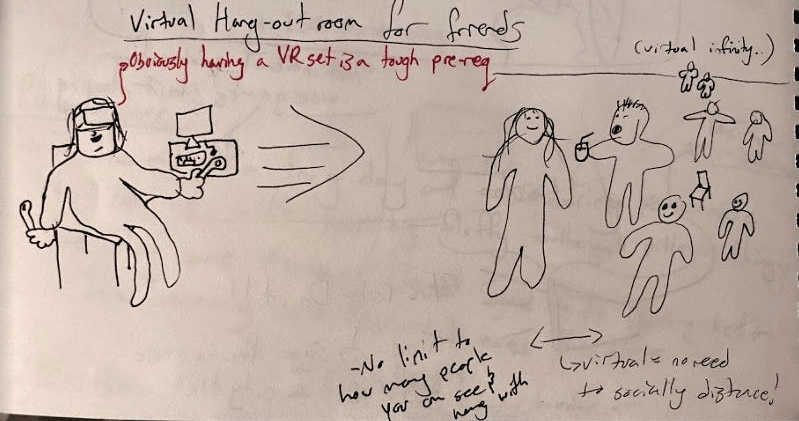 Virtual Hang-out room for friends
Obviously having a VR set is a tough pre-req
(virtual infinity..)
-No limit to
how many people
you can see &
hang with
↳virtual = no need
to socially distance!